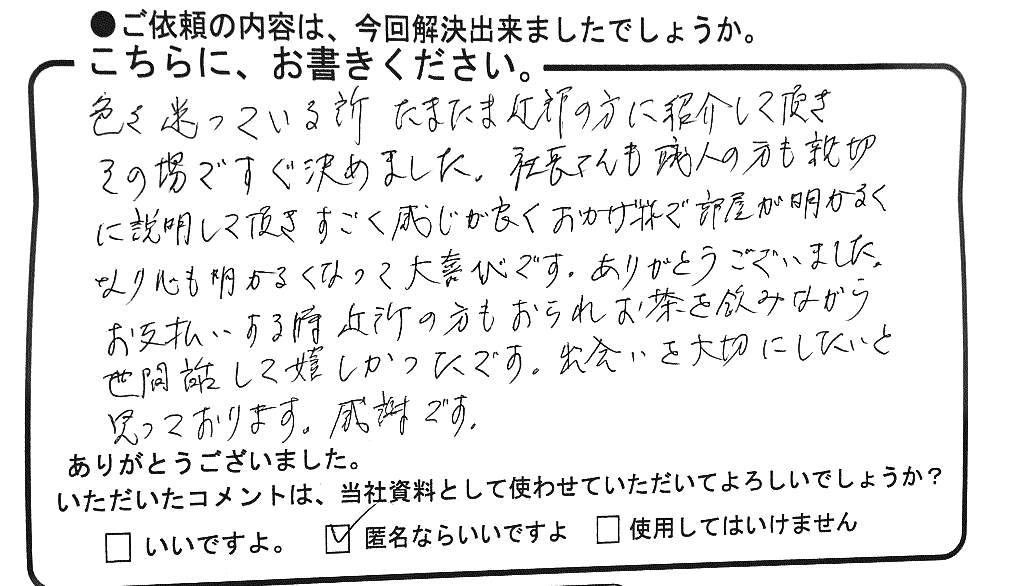 ●ご依頼の内容は、今回解決出来ましたでしょうか。
こちらに、お書きください。
色々迷っている所 たまたま近郊の方に紹介して頂き
その場ですぐ決めました。社長さんも職人の方も親切
に説明して頂きすごく感じが良くおかげ様で部屋が明かるく
なり心も明かるくなって大喜びです。ありがとうございました。
お支払いする時近所の方もおられお茶を飲みながら
世間話して嬉しかったです。出会いを大切にしたいと
思っております。感謝です。
ありがとうございました。
いただいたコメントは、当社資料として使わせていただいてよろしいでしょうか？
□ いいですよ。 ☑ 匿名ならいいですよ □ 使用してはいけません